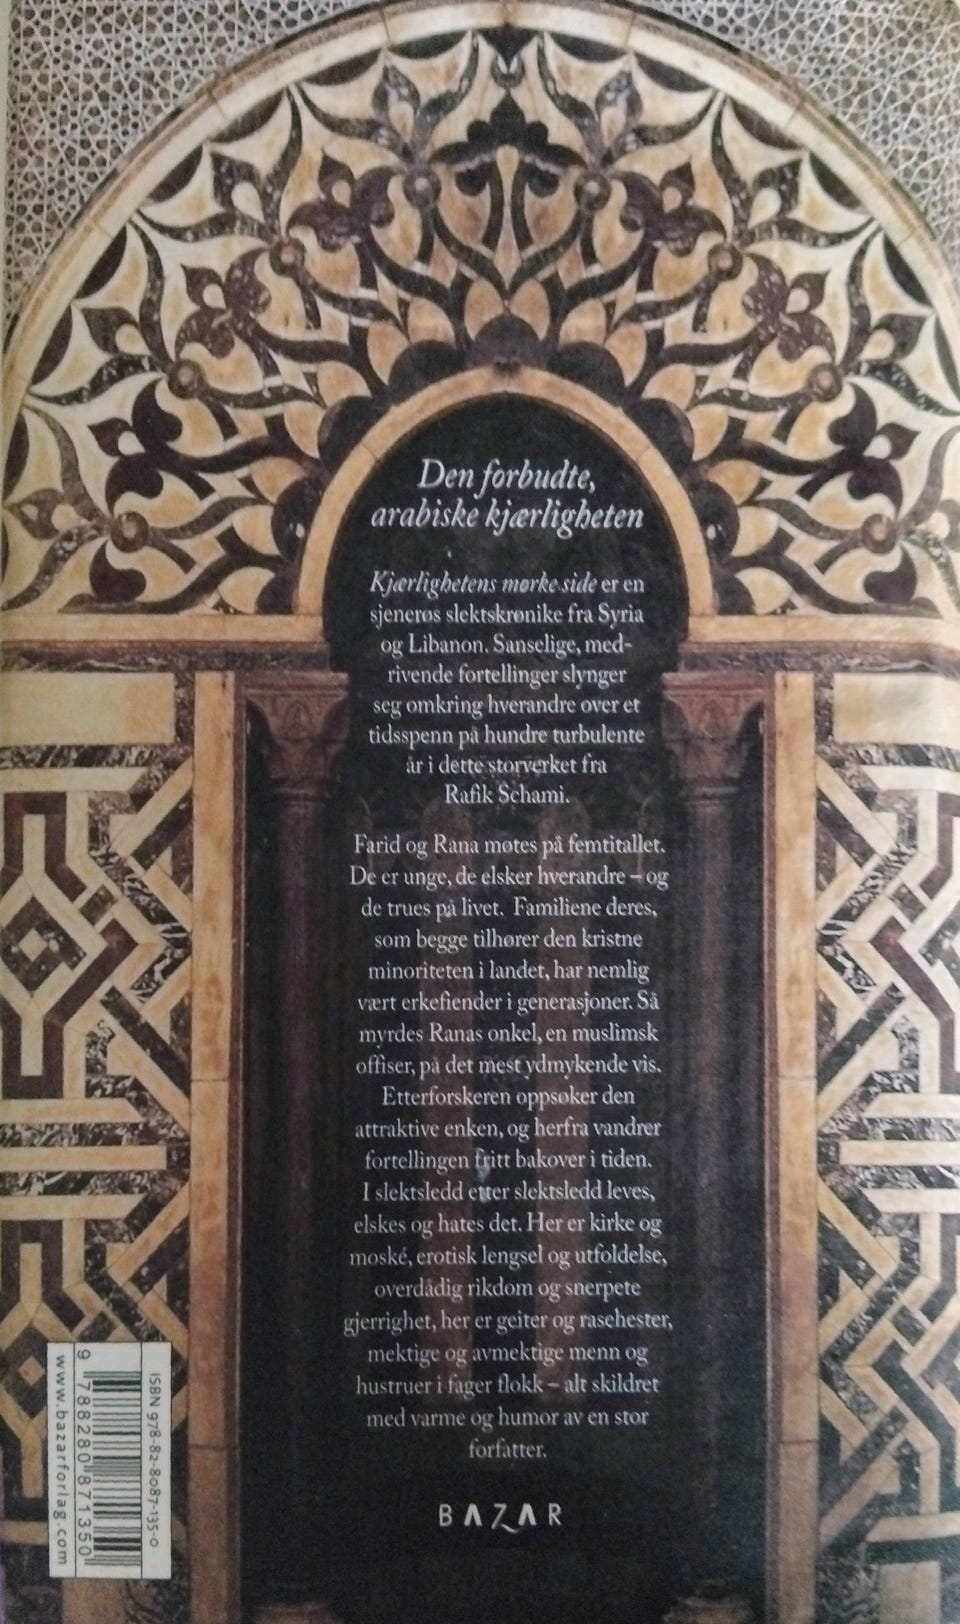 Den forbudte,
arabiske kjærligheten
Kjærlighetens mørke side er en
sjenerøs slektskrønike fra Syria
og Libanon. Sanselige, med-
rivende fortellinger slynger
seg omkring hverandre over et
tidsspenn på hundre turbulente
år i dette storverket fra
Rafik Schami.
Farid og Rana møtes på femtitallet.
De er unge, de elsker hverandre – og
de trues på livet. Familiene deres,
som begge tilhører den kristne
minoriteten i landet, har nemlig
vært erkefiender i generasjoner. Så
myrdes Ranas onkel, en muslimsk
offiser, på det mest ydmykende vis.
Etterforskeren oppsøker den
attraktive enken, og herfra vandrer
fortellingen fritt bakover i tiden.
I slektsledd etter slektsledd leves,
elskes og hates det. Her er kirke og
moské, erotisk lengsel og utfoldelse,
overdådig rikdom og snerpete
gjerrighet, her er geiter og rasehester,
mektige og avmektige menn og
hustruer i fager flokk – alt skildret
med varme og humor av en stor
forfatter.
BAZAR
ISBN 978-82-8087-135-0
9 788280 871350
www.bazarforlag.com